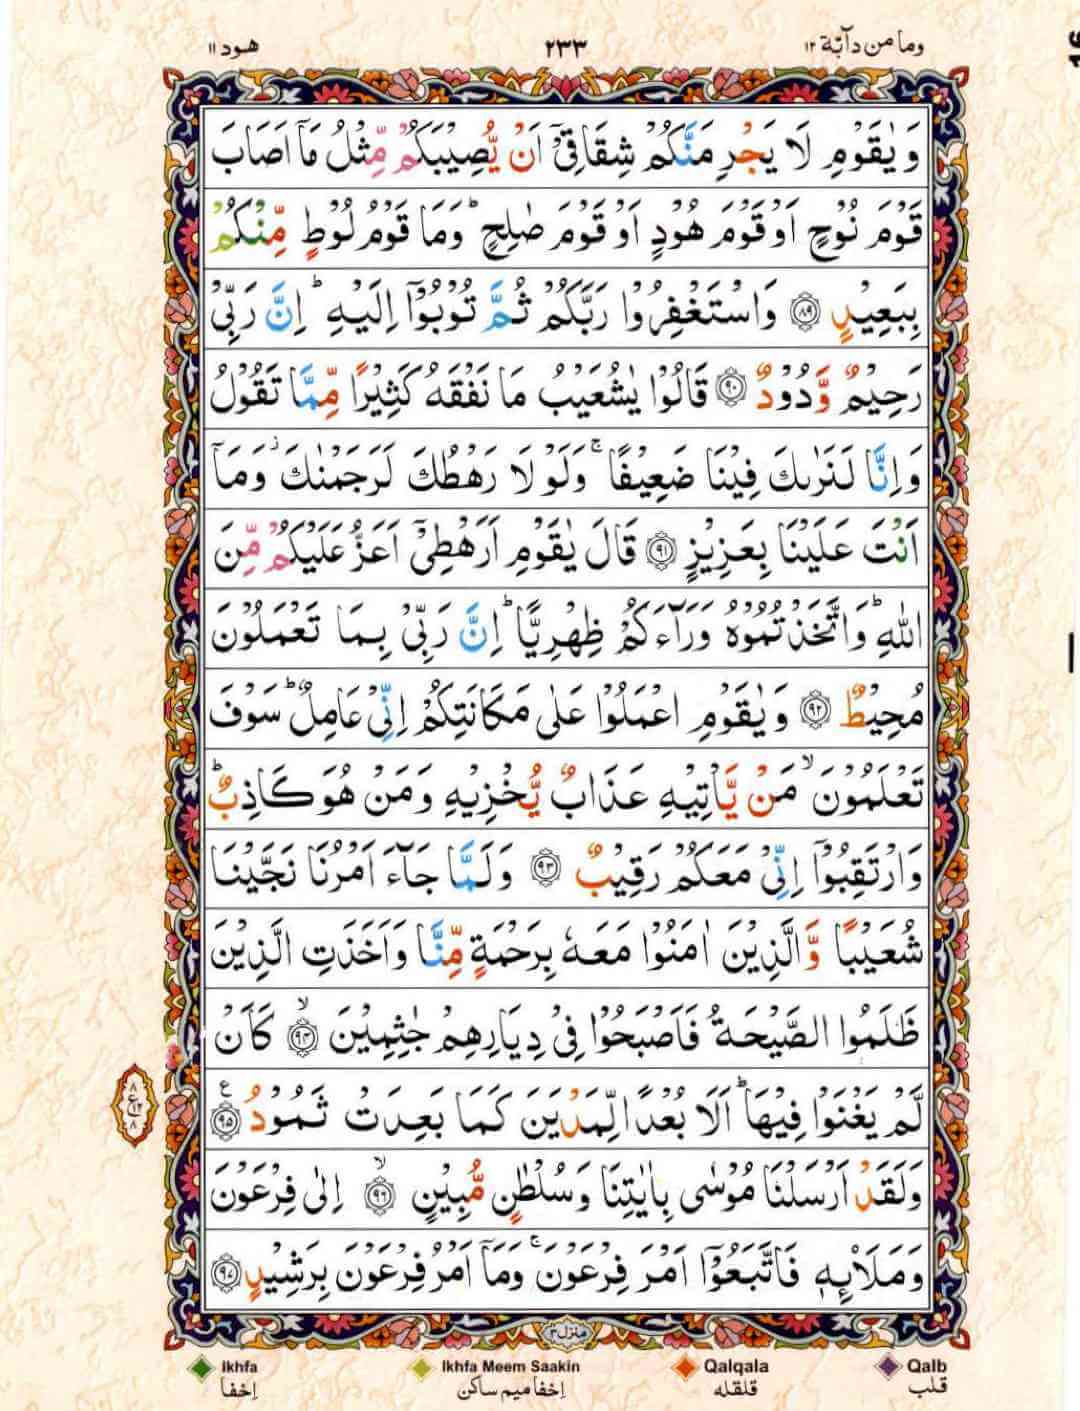 وما من دآبة ١٢
٢٣٣
هود ١١
وَيٰقَوْمِ لَا يَجْرِمَنَّكُمْ شِقَاقِيْۤ اَنْ يُّصِيْبَكُمْ مِّثْلُ مَاۤ اَصَابَ
قَوْمَ نُوْحٍ اَوْ قَوْمَ هُوْدٍ اَوْ قَوْمَ صٰلِحٍ ؕ وَمَا قَوْمُ لُوْطٍ مِّنْكُمْ
بِبَعِيْدٍ ﴿٨٩﴾ وَاسْتَغْفِرُوْا رَبَّكُمْ ثُمَّ تُوْبُوْۤا اِلَيْهِ ؕ اِنَّ رَبِّيْ
رَحِيْمٌ وَّدُوْدٌ ﴿٩٠﴾ قَالُوْا يٰشُعَيْبُ مَا نَفْقَهُ كَثِيْرًا مِّمَّا تَقُوْلُ
وَاِنَّا لَنَرٰىكَ فِيْنَا ضَعِيْفًا ۚ وَلَوْلَا رَهْطُكَ لَرَجَمْنٰكَ ؗ وَمَاۤ
اَنْتَ عَلَيْنَا بِعَزِيْزٍ ﴿٩١﴾ قَالَ يٰقَوْمِ اَرَهْطِيْۤ اَعَزُّ عَلَيْكُمْ مِّنَ
اللّٰهِ ؕ وَاتَّخَذْتُمُوْهُ وَرَآءَكُمْ ظِهْرِيًّا ؕ اِنَّ رَبِّيْ بِمَا تَعْمَلُوْنَ
مُحِيْطٌ ﴿٩٢﴾ وَيٰقَوْمِ اعْمَلُوْا عَلٰى مَكَانَتِكُمْ اِنِّيْ عَامِلٌ ؕ سَوْفَ
تَعْلَمُوْنَ ۙ مَنْ يَّاْتِيْهِ عَذَابٌ يُّخْزِيْهِ وَمَنْ هُوَ كَاذِبٌ ؕ
وَارْتَقِبُوْۤا اِنِّيْ مَعَكُمْ رَقِيْبٌ ﴿٩٣﴾ وَلَمَّا جَآءَ اَمْرُنَا نَجَّيْنَا
شُعَيْبًا وَّالَّذِيْنَ اٰمَنُوْا مَعَهٗ بِرَحْمَةٍ مِّنَّا وَاَخَذَتِ الَّذِيْنَ
ظَلَمُوا الصَّيْحَةُ فَاَصْبَحُوْا فِيْ دِيَارِهِمْ جٰثِمِيْنَ ۙ ﴿٩٤﴾ كَاَنْ
لَّمْ يَغْنَوْا فِيْهَا ؕ اَلَا بُعْدًا لِّمَدْيَنَ كَمَا بَعِدَتْ ثَمُوْدُ ﴿٩٥﴾ ع
٨ ع ١٢ ٨
وَلَقَدْ اَرْسَلْنَا مُوْسٰى بِاٰيٰتِنَا وَسُلْطٰنٍ مُّبِيْنٍ ۙ ﴿٩٦﴾ اِلٰى فِرْعَوْنَ
وَمَلَا۟ئِهٖ فَاتَّبَعُوْۤا اَمْرَ فِرْعَوْنَ ۚ وَمَاۤ اَمْرُ فِرْعَوْنَ بِرَشِيْدٍ ﴿٩٧﴾
منزل ٣
Ikhfa
Ikhfa Meem Saakin
Qalqala
Qalb
اِخفا
اِخفا میم ساکن
قلقله
قلب